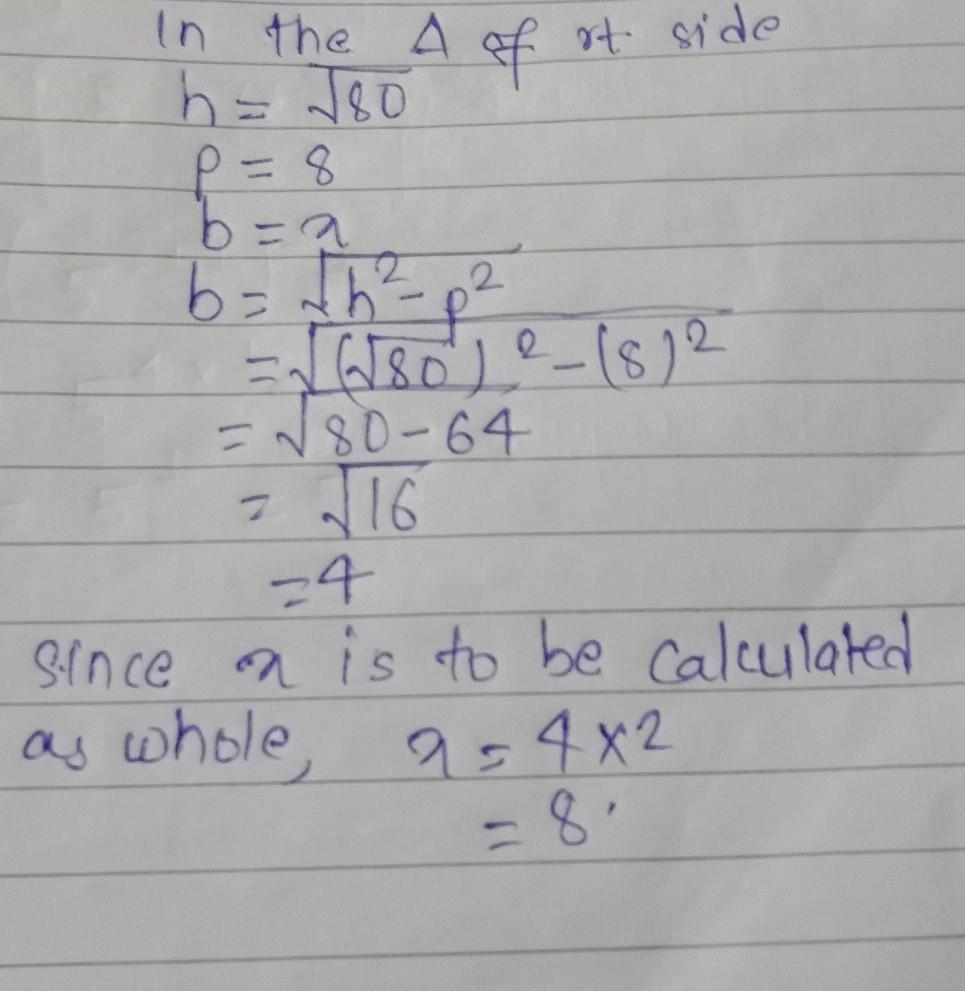 In the Δ of rt. side
h = √80
p = 8
b = x
b = √h² - p²
= √(√80)² - (8)²
= √80 - 64
= √16
= 4
since x is to be calculated
as whole, x = 4 x 2
= 8.